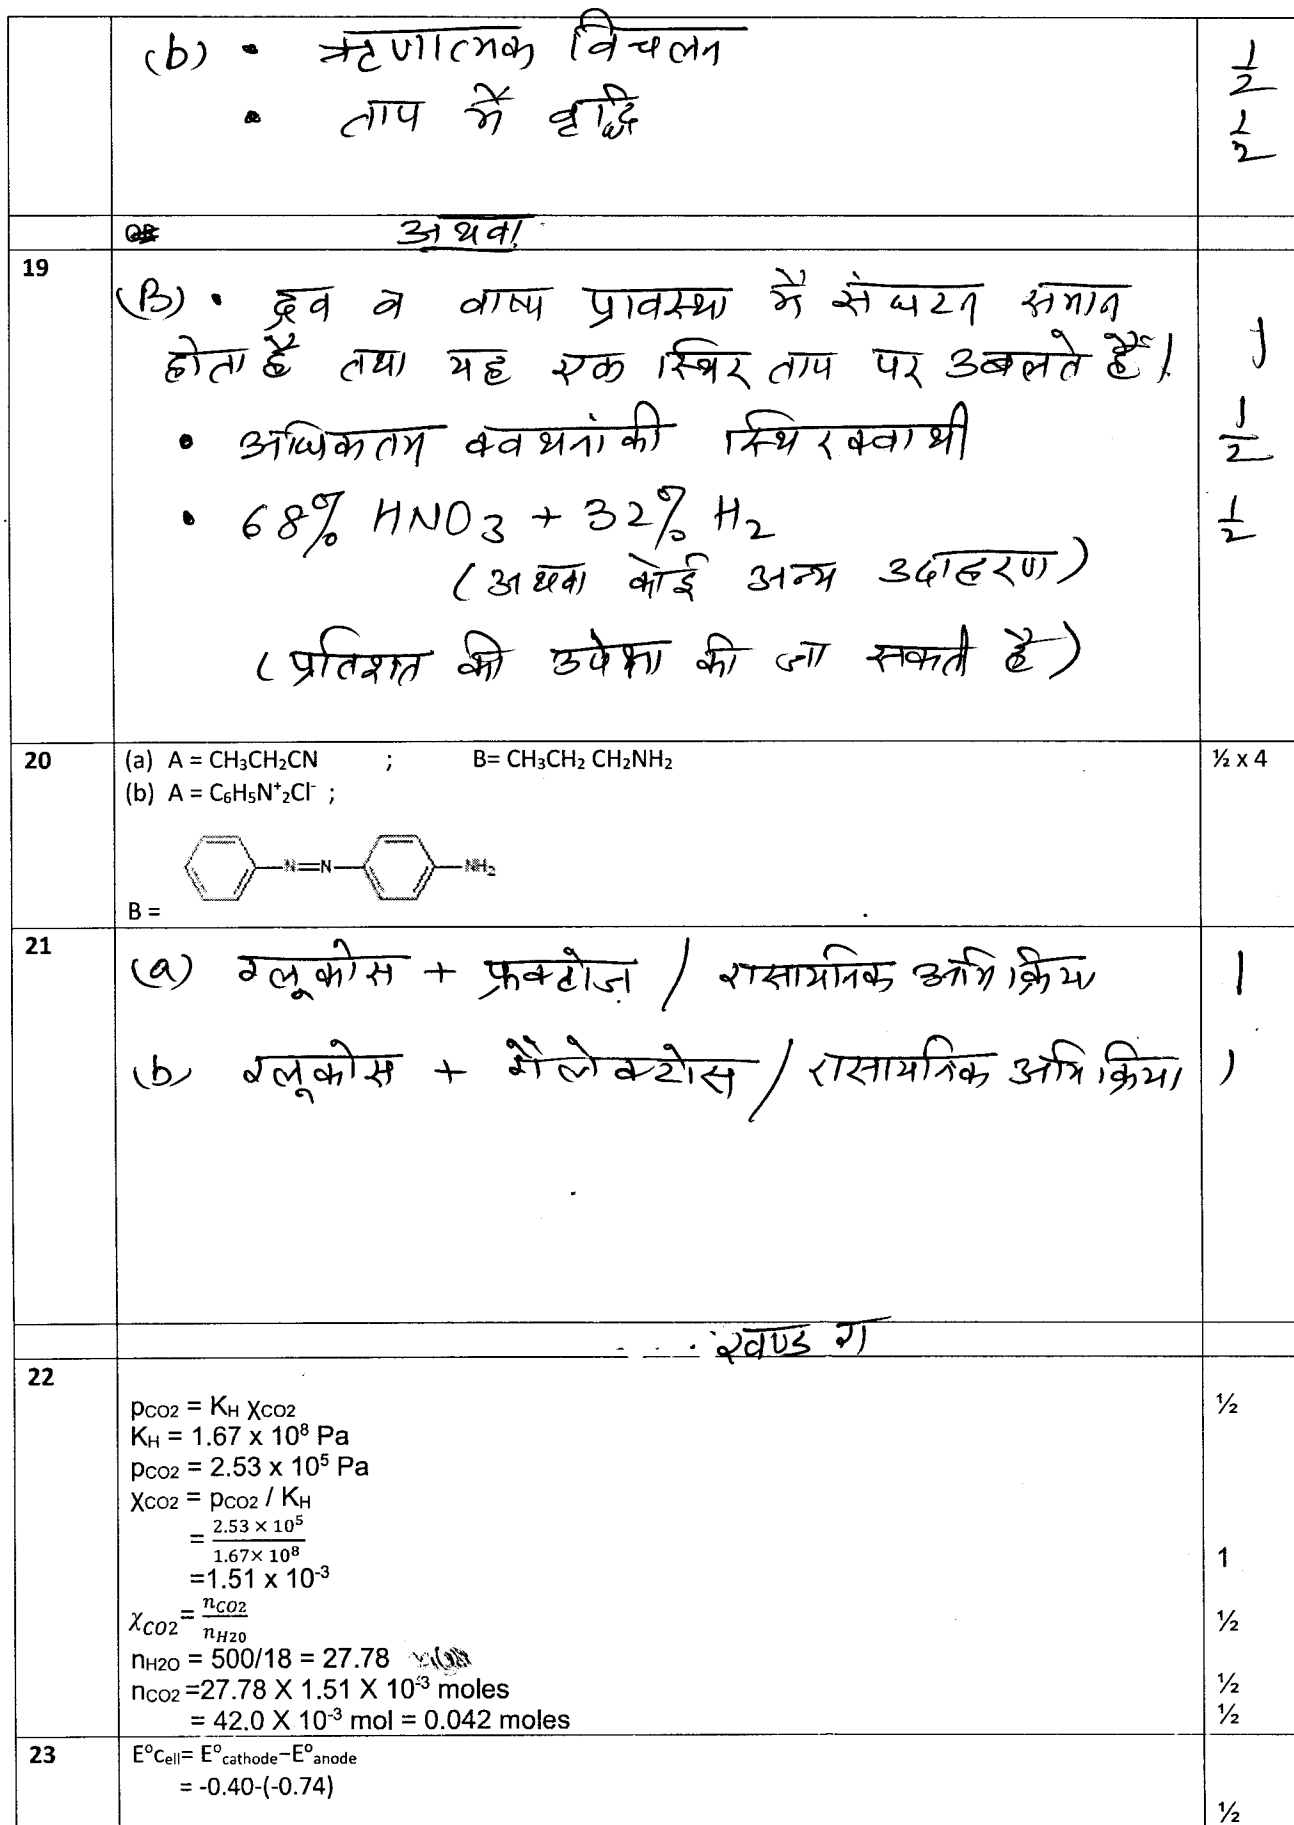 (b) • ऋणात्मक विचलन 1/2
• ताप में वृद्धि 1/2
अथवा
19
(B) • द्रव व वाष्प प्रावस्था में संघटन समान
होता है तथा यह एक स्थिर ताप पर उबलते हैं। 1
• अधिकतम क्वथनांकी स्थिरक्वाथी 1/2
• 68% HNO3 + 32% H2 1/2
(अथवा कोई अन्य उदाहरण)
(प्रतिशत की उपेक्षा की जा सकती है)
20 (a) A = CH₃CH₂CN ; B= CH₃CH₂ CH₂NH₂ ½ x 4
(b) A = C₆H₅N⁺₂Cl⁻ ;
N=N NH₂
B =
21 (a) ग्लूकोस + फ्रक्टोज़ / रासायनिक अभिक्रिया 1
(b) ग्लूकोस + गैलेक्टोस / रासायनिक अभिक्रिया 1
खण्ड ग
22
pCO2 = KH χCO2 ½
KH = 1.67 x 10⁸ Pa
pCO2 = 2.53 x 10⁵ Pa
χCO2 = pCO2 / KH
= 2.53 × 10⁵ / 1.67× 10⁸
=1.51 x 10⁻³ 1
χCO2 = nCO2 / nH20 ½
nH2O = 500/18 = 27.78
nCO2 =27.78 X 1.51 X 10⁻³ moles ½
= 42.0 X 10⁻³ mol = 0.042 moles ½
23 E⁰Cell= E⁰cathode–E⁰anode
= -0.40-(-0.74)
½